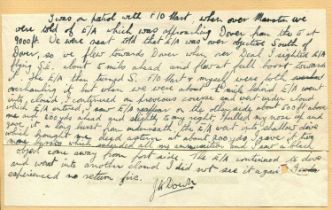 I was on patrol with F/O Hart, when over Manston we
were told of E/A which was approaching Dover from the S at
9000 ft. We were next told that E/A was over objective South of
Dover, so we flew towards Dover when near Deal I sighted E/A
flying S.E. about 5 miles ahead and flew at full boost towards
it. The E/A then turned S. F/O Hart & myself were both
overhauling it but when we were about mile behind E/A went
into cloud. I continued on previous course and went under cloud
which E/A entered. I saw E/A on the about 500 ft above
me and 400 yds ahead and slightly to my right. I pulled my nose up and
gave it a long burst from underneath the E/A went into shallow dive
which brought it dead astern at about 200 yds. I gave it two
more bursts which expended all my ammunition and I saw a black
object come away from port side. The E/A continued to dive
and went into another cloud I did not see it again. I
experienced no return fire.